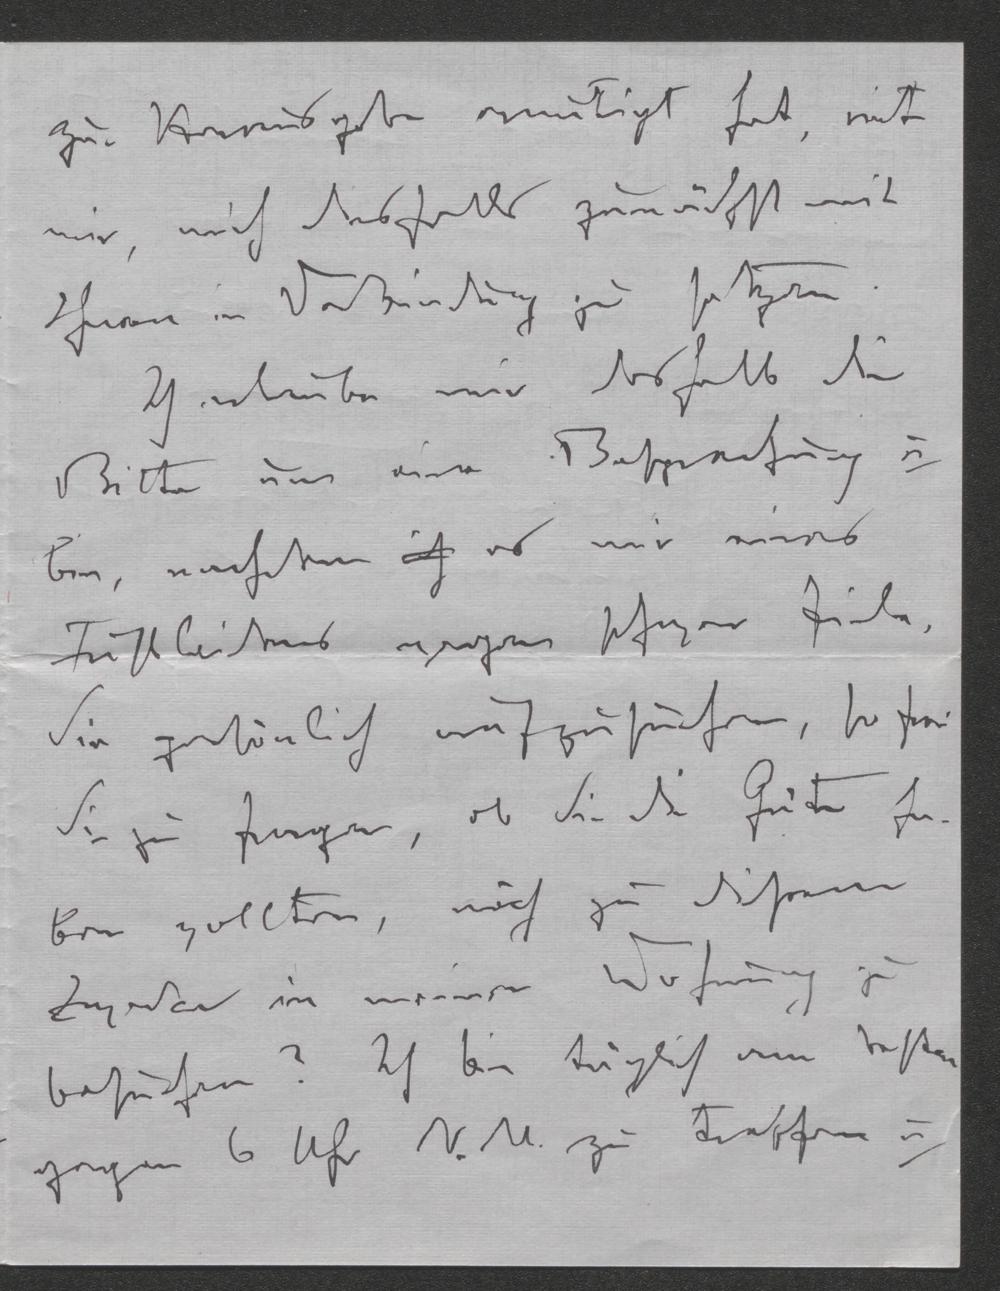 zur Herausgabe ermutigt hat, riet
mir, mich desfalls zunächst mit
Ihnen in Verbindung zu setzen.
Ich erlaube mir deshalb die
Bitte um eine Besprechung u
bin, nachdem ich es mir eines
Fußleidens wegen schwer fiele,
Sie persönlich aufzusuchen, so frei
Sie zu fragen, ob Sie die Güte ha-
ben wollten, mich zu diesem
Zwecke in meiner Wohnung zu
besuchen? Ich bin täglich am besten
gegen 6 Uhr N.M. zu treffen u